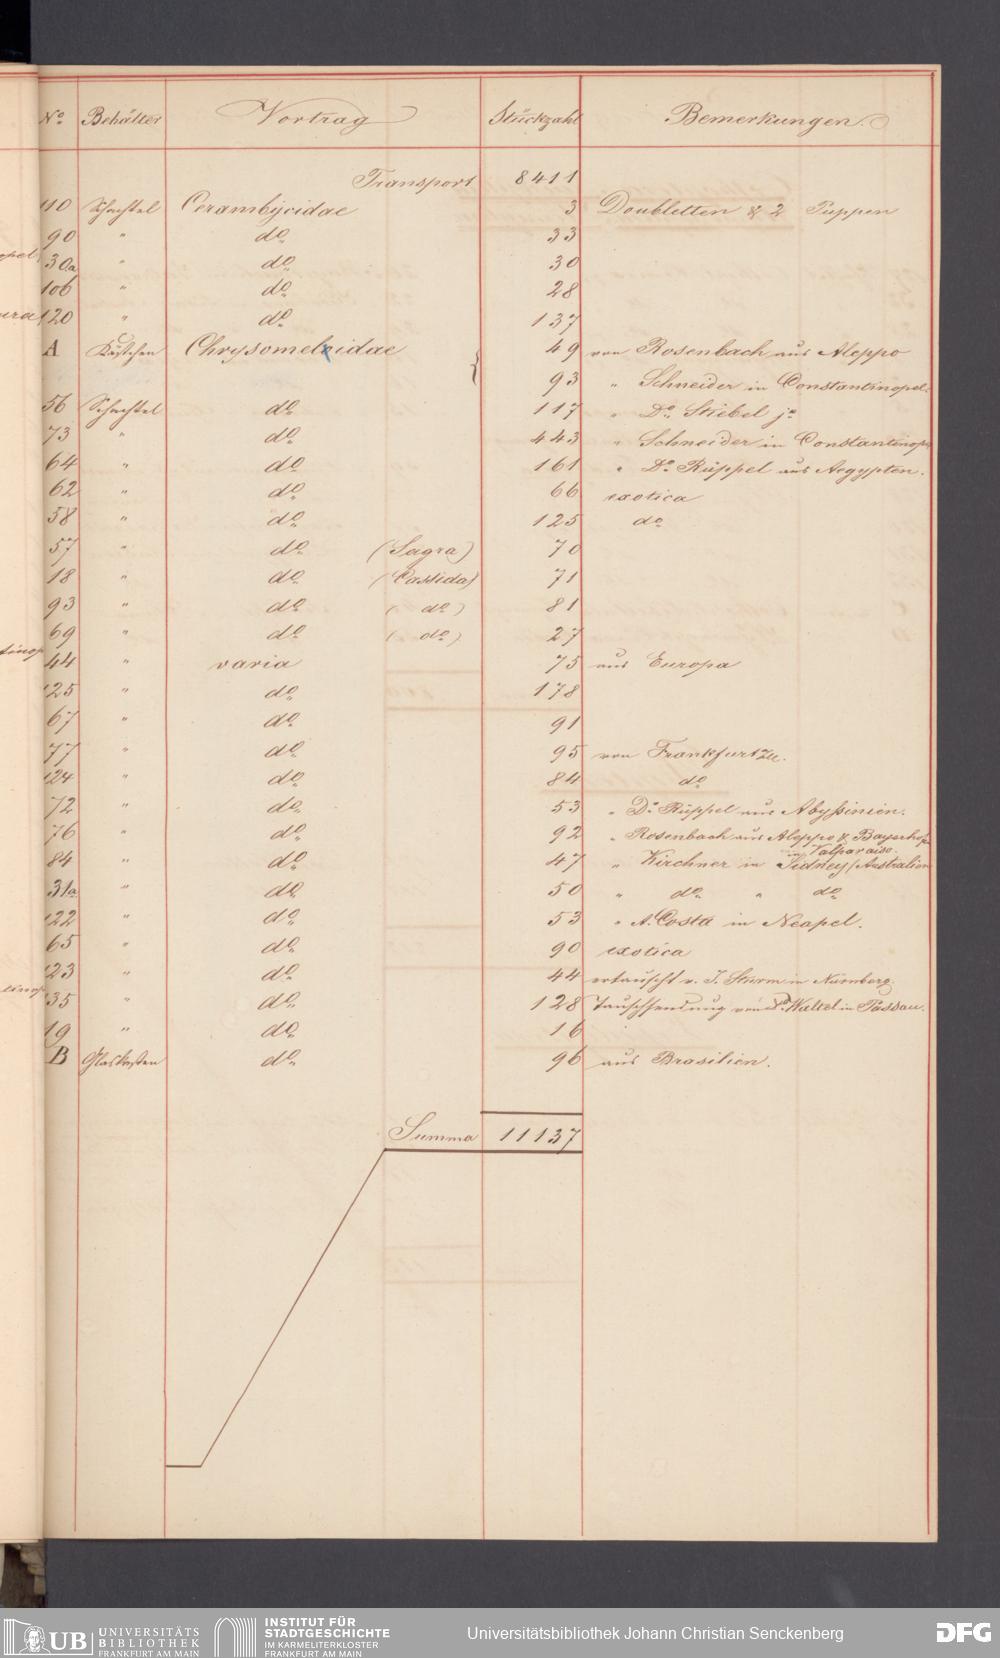 No. Behälter Vortrag Stückzahl Bemerkungen.
Transport 8411
110 Schachtel Cerambÿcidae 3 Doubletten & 2 Puppen
90 " do. 33
30a " do. 30
106 " do. 28
120 " do. 137
A Kästchen Chrysomelxidae { 49 von Rosenbach aus Aleppo
93 " Schneider in Constantinopel.
56 Schachtel do. 117 " Dr. Stiebel jr.
73 " do. 443 " Schneider in Constantinopel
64 " do. 161 " Dr. Rüppel aus Aegypten.
62 " do. 66 exotica
58 " do. 125 do.
57 " do. (Sagra) 70
18 " do. (Cassida) 71
93 " do. ( do. ) 81
69 " do. ( do. ) 27
44 " varia 75 aus Europa
125 " do. 178
67 " do. 91
77 " do. 95 von Frankfurt
124 " do. 84 do.
72 " do. 53 " Dr. Rüppel aus Abyßinien.
76 " do. 92 " Rosenbach aus Aleppo &
in Valparaiso.
84 " do. 47 " Kirchner in Sidney/Australien
31a " do. 50 " do. " do.
122 " do. 53 " A. Costa in Neapel.
65 " do. 90 exotica
123 " do. 44 ertauscht v. J. Sturm in Nürnberg.
135 " do. 128 Tauschsendung von Dr. Waltl in Passau.
19 " do. 16
B Glaskasten do. 96 aus Brasilien.
Summa 11137
UB UNIVERSITÄTS
BIBLIOTHEK
FRANKFURT AM MAIN
INSTITUT FÜR
STADTGESCHICHTE
IM KARMELITERKLOSTER
FRANKFURT AM MAIN
Universitätsbibliothek Johann Christian Senckenberg
DFG